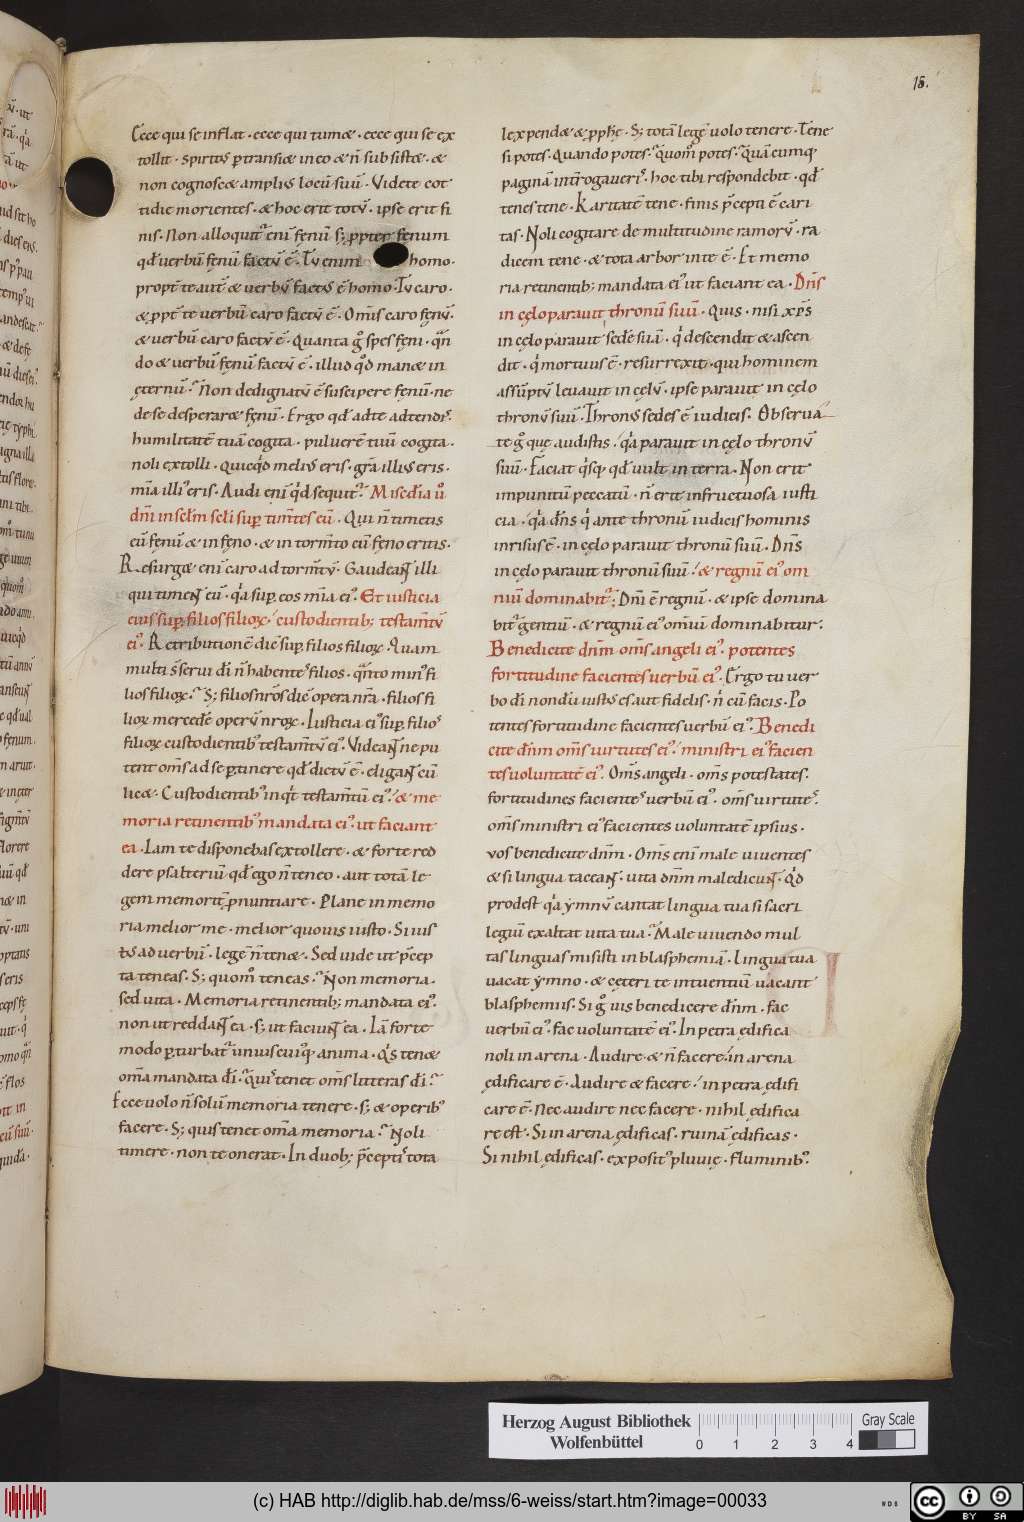 15.
Ecce qui se inflat · ecce qui tumet · ecce qui se ex
tollit · spiritus ptransiet in eo & n̄ subsistet · &
non cognoscet amplius locū suū · Videte cot
tidie morientes · & hoc erit totū · ipse erit fi
nis · Non alloquit̄ enī fenū s; ppter fenum
qd̄ uerbū fenū factū ē · Tu enim homo ·
propt̄ te aut̄ & uerbū factū ē homo · Tu caro ·
& ppt̄ te uerbū caro factū ē · Om̄is caro fenū ·
& uerbū caro factū ē · Quanta g̊ spes feni · qn̄
do & uerbū fenū factū ē · illud qd̄ manet in
ęternū · Non dedignatū ē suscipere fenū · ne
de se desperaret fęnū · Ergo qd̄ ad te adtendis
humilitatē tuā cogita · puluerē tuū cogita ·
noli extolli · Quicqd melius eris · gr̄a illius eris ·
mīa illi' eris · Audi enī qd sequit̄ · Misedia ū
dn̄i in sclm scli sup timtes eū · Qui n̄ timetis
eū fęnū & in fęno · & in tormto cū fęno eritis ·
Resurget enī caro ad tormtū · Gaudeant illi
qui timent eū · qa sup eos mīa ei' · Et iusticia
eius sup filios filiox · custodientib; testamtū
ei' · Retributionē diē sup filios filiox · Quam
multi s̄ serui di n̄ habentes filios · qn̄to min' fi
lios filiox · S; filios nr̄os diē opera nr̄a · filios fi
liox mercedē operū nrox · Iusticia ei' sup filios
filiox custodientib' testamtū ei' · Videant ne pu
tent om̄s ad se ptinere qd̄ dictū ē · eligant cū
licet · Custodientib' inqt testamtū ei' · & me
moria retinentib' mandata ei' · ut faciant
ea · Iam te disponebas extollere · & forte red
dere psalteriū qd̄ ego n̄ teneo · aut totā le
gem memorit pnuntiare · Plane in memo
ria melior me · melior quouis iusto · Si ius
tus ad uerbū · legē n̄ tenet · Sed uide ut pcep
ta teneas · S; quom̊ teneas · Non memoria ·
sed uita · Memoria retinentib; mandata ei' ·
non ut reddant ea · s; ut faciunt ea · Iā forte
modo pturbat̄ uniuscuiq anima · Qis tenet
om̄a mandata di · Quis tenet om̄s litteras di ·
Ecce uolo n̄ solū memoria tenere · s; & operib'
facere · S; quis tenet om̄a memoria · Noli
timere · non te onerat · In duob; pceptis tota
lex pendet & pphę · S; totā legē uolo tenere · Tene
si potes · quando potes · quom̊ potes · Quācumq
paginā introgaueris · hoc tibi respondebit · qd̄
tenes tene · Karitatē tene · finis p̄cepti ē cari
tas · Noli cogitare de multitudine ramorū · ra
dicem tene · & tota arbor in te ē · Et memo
ria retinentib; mandata ei' ut faciant ea · Dn̄s
in cęlo parauit thronū suū · Quis · nisi xp̄s
in cęlo parauit sedē suā · q descendit & ascen
dit · q mortuus ē · resurrexit · qui hominem
assūptū leuauit in cęlū · ipse parauit in cęlo
thronū suū · Thronus sedes ē iudicis · Obserua
te g̊ que audistis · qa parauit in cęlo thronū
suū · Faciat qsq qd̄ uult in terra · Non erit
impunitū peccatū · n̄ erit infructuosa iusti
cia · qa dn̄s q ante thronū iudicis hominis
inrisus ē · in cęlo parauit thronū suū · Dn̄s
in cęlo parauit thronū suū · & regnū ei' om
niū dominabit̄ · Dn̄i ē regnū · & ipse domina
bit̄ gentiū · & regnū ei' omniū dominabitur ·
Benedicite dn̄m om̄s angeli ei' · potentes
fortitudine facientes uerbū ei' · Ergo tu uer
bo di nondū iustus es aut fidelis · n̄ cū facis · Po
tentes fortitudine facientes uerbū ei' · Benedi
cite dn̄m om̄s uirtutes ei' · ministri ei' facien
tes uoluntatē ei' · Om̄s angeli · om̄s potestates ·
fortitudines facientes uerbū ei' · om̄s uirtutes ·
om̄s ministri ei' facientes uoluntatē ipsius ·
vos benedicite dn̄m · Om̄s enī male uiuentes
& si lingua taceant · uita dn̄m maledicunt · Qd
prodest qa ymnū cantat lingua tua si sacri
legiū exaltat uita tua · Male uiuendo mul
tas linguas misisti in blasphemiā · Lingua tua
uacat ymno · & ceteri te intuentiū uacant
blasphemiis · Si g̊ uis benedicere dn̄m · fac
uerbū ei' · fac uoluntatē ei' · In petra ędifica
noli in arena · Audire & n̄ facere · in arena
ędificare ē · Audire & facere · in petra ędifi
care ē · Nec audire nec facere · nihil ędifica
re est · Si in arena ędificas · ruinā ędificas ·
Si nihil ędificas · exposit' pluuię · fluminib'
Herzog August Bibliothek
Wolfenbüttel
0 1 2 3 4
Gray Scale
(c) HAB http://diglib.hab.de/mss/6-weiss/start.htm?image=00033
WDB
cc BY SA